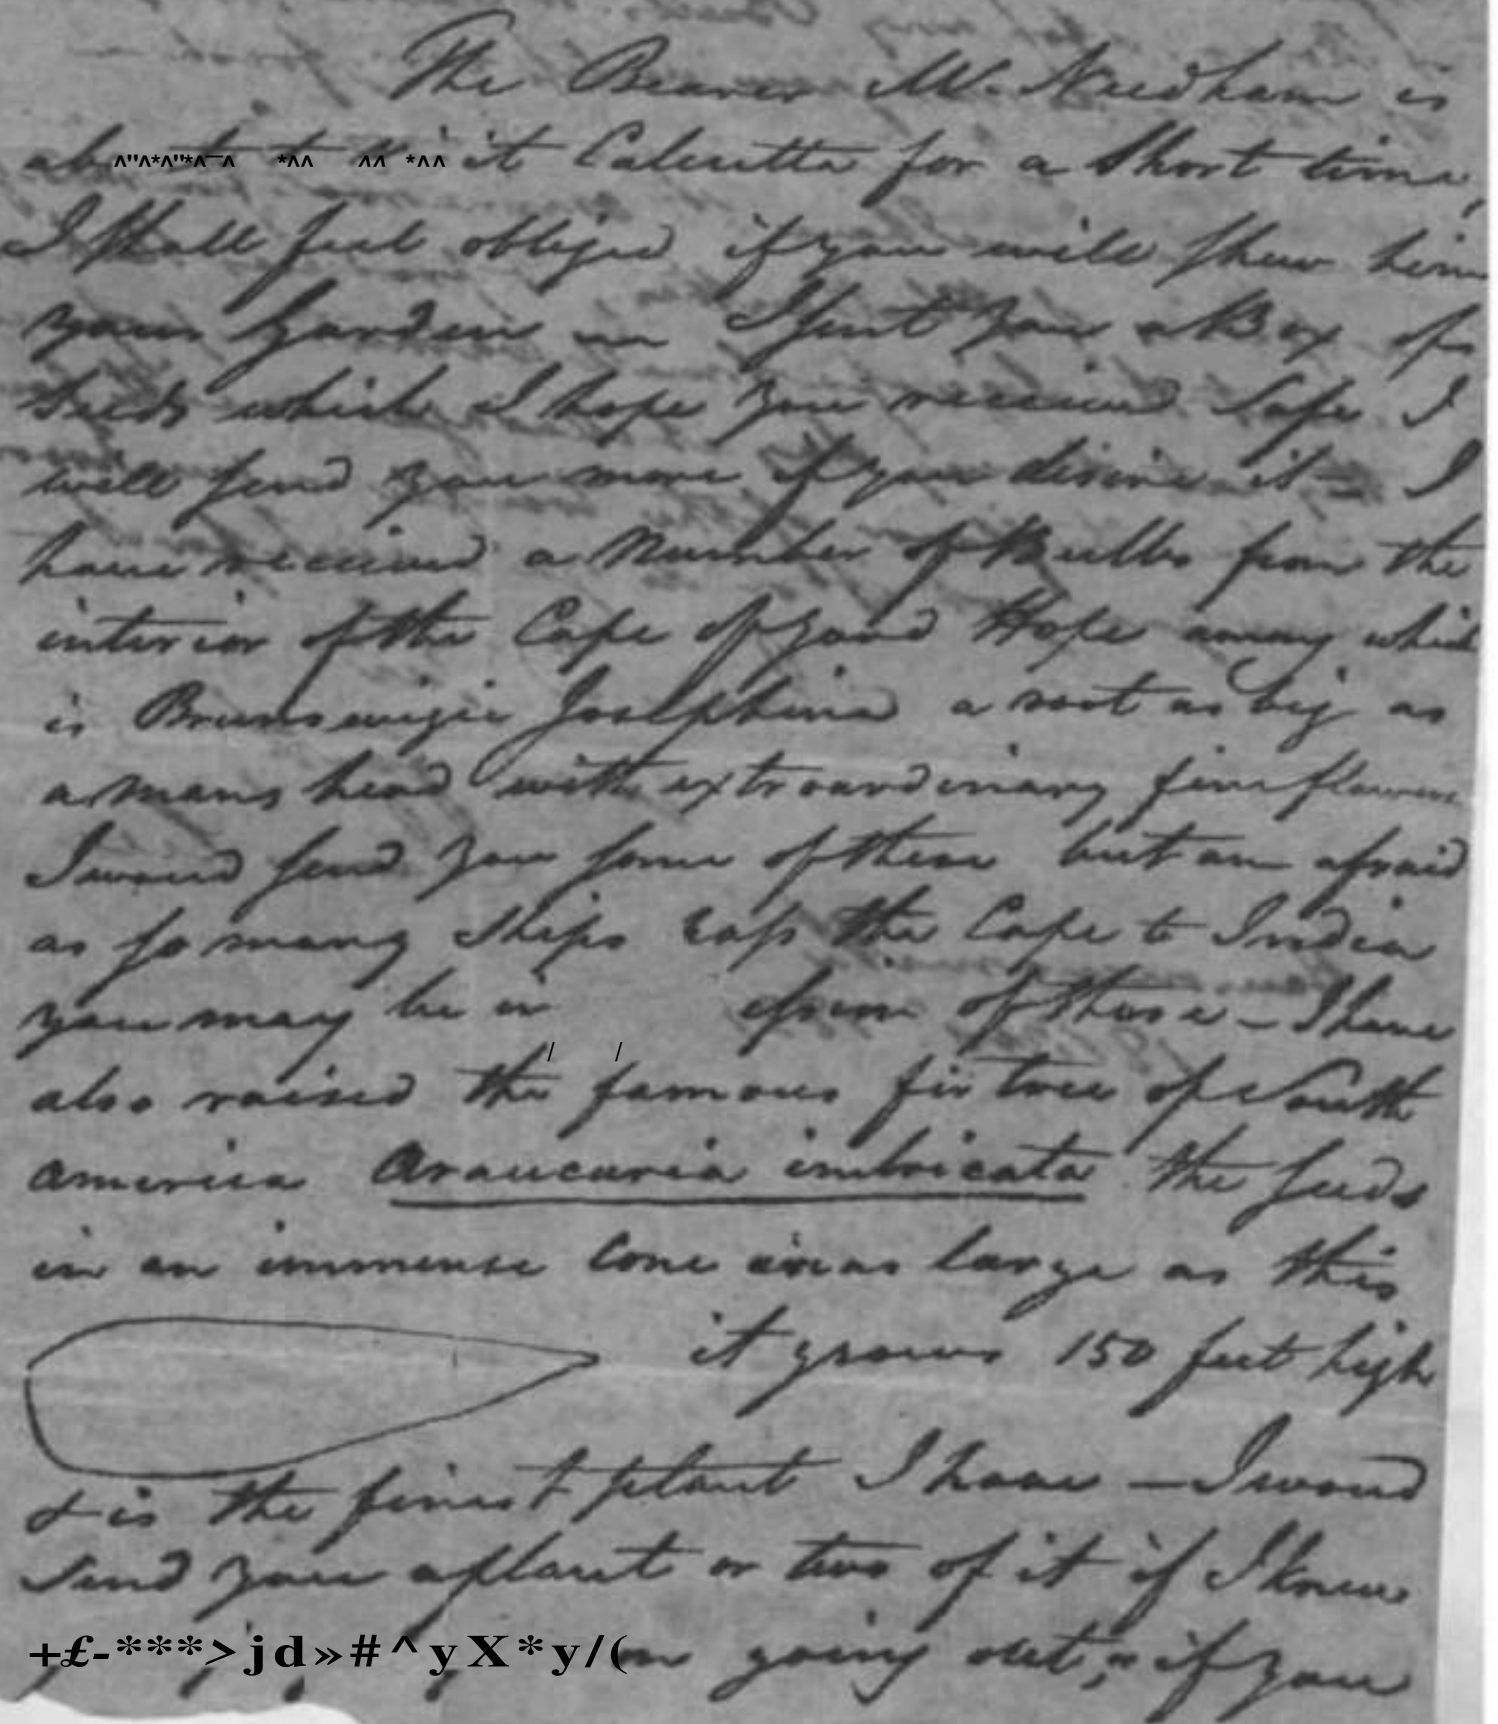 The Bearer Mr. Needham is
to visit Calcutta for a Short time,
I shall feel obliged if you will shew him
your Garden I sent you a Box of
Seeds which I hope you received safe I
will send you more if you desire it - I
have received a Number of Bulbs from the
interior of the Cape of good Hope among which
is Brunswigie Josephina a root as big as
a mans head with extraordinary fine flowers
I woud send you some of these but am afraid
as so many Ships the Cape to India
you may be in of these - I have
also raised the famous fir tree of South
america Araucaria imbricata the seeds
in an immense Cone as large as this
it grows 150 feet high
& is the finest plant I have - I woud
send you a plant or two of it if I knew
going out, if you